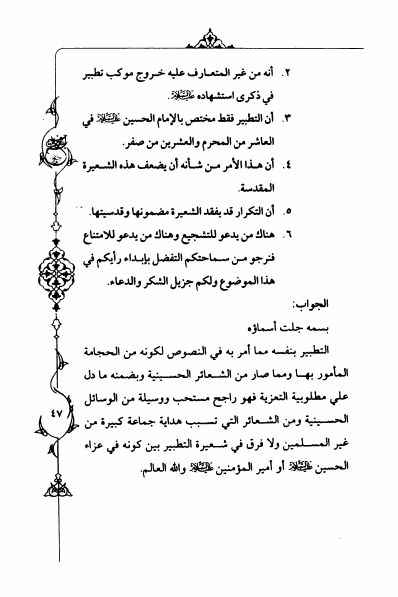 ٢. أنه من غير المتعارف عليه خروج موكب تطبير
في ذكرى استشهاده عليه السلام.
٣. أن التطبير فقط مختص بالإمام الحسين عليه السلام في
العاشر من المحرم والعشرين من صفر.
٤. أن هذا الأمر من شأنه أن يضعف هذه الشعيرة
المقدسة.
٥. أن التكرار قد يفقد الشعيرة مضمونها وقدسيتها.
٦. هناك من يدعو للتشجيع وهناك من يدعو للامتناع
فنرجو من سماحتكم التفضل بإبداء رأيكم في
هذا الموضوع ولكم جزيل الشكر والدعاء.
الجواب:
بسمه جلت أسماؤه
التطبير بنفسه مما أمر به في النصوص لكونه من الحجامة
المأمور بها ومما صار من الشعائر الحسينية وبضمنه ما دل
علي مطلوبية التعزية فهو راجح مستحب ووسيلة من الوسائل
الحسينية ومن الشعائر التي تسبب هداية جماعة كبيرة من
غير المسلمين ولا فرق في شعيرة التطبير بين كونه في عزاء
الحسين عليه السلام أو أمير المؤمنين عليه السلام والله العالم.
٤٧